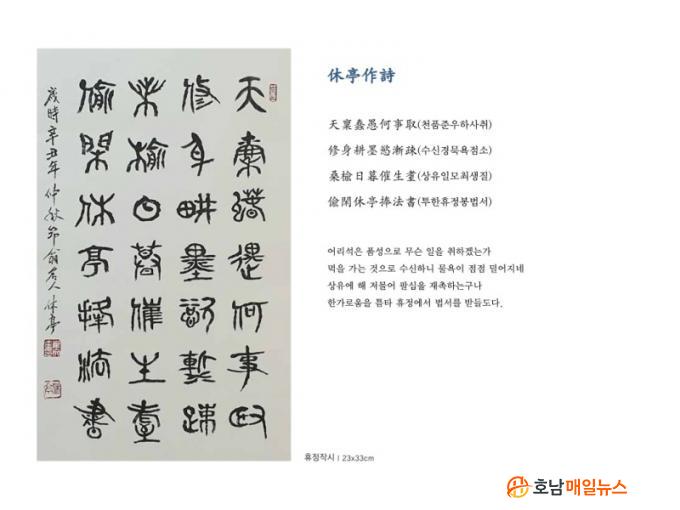 休亭作詩
天稟蠢愚何事取(천품준우하사취)
修身耕墨慾漸疎(수신경묵욕점소)
桑榆日暮催生耋(상유일모최생질)
偸閑休亭捧法書(투한휴정봉법서)
어리석은 품성으로 무슨 일을 취하겠는가
먹을 가는 것으로 수신하니 물욕이 점점 멀어지네
상유에 해 저물어 팔십을 재촉하는구나
한가로움을 틈타 휴정에서 법서를 받들도다.
天稟蠢愚何事取
修身畊墨慾暫疎
桑榆日暮催生耋
偸閑休亭捧法書
歲時辛丑年仲秋節 翁名人 休亭
휴정작시 | 23x33cm
호남매일뉴스